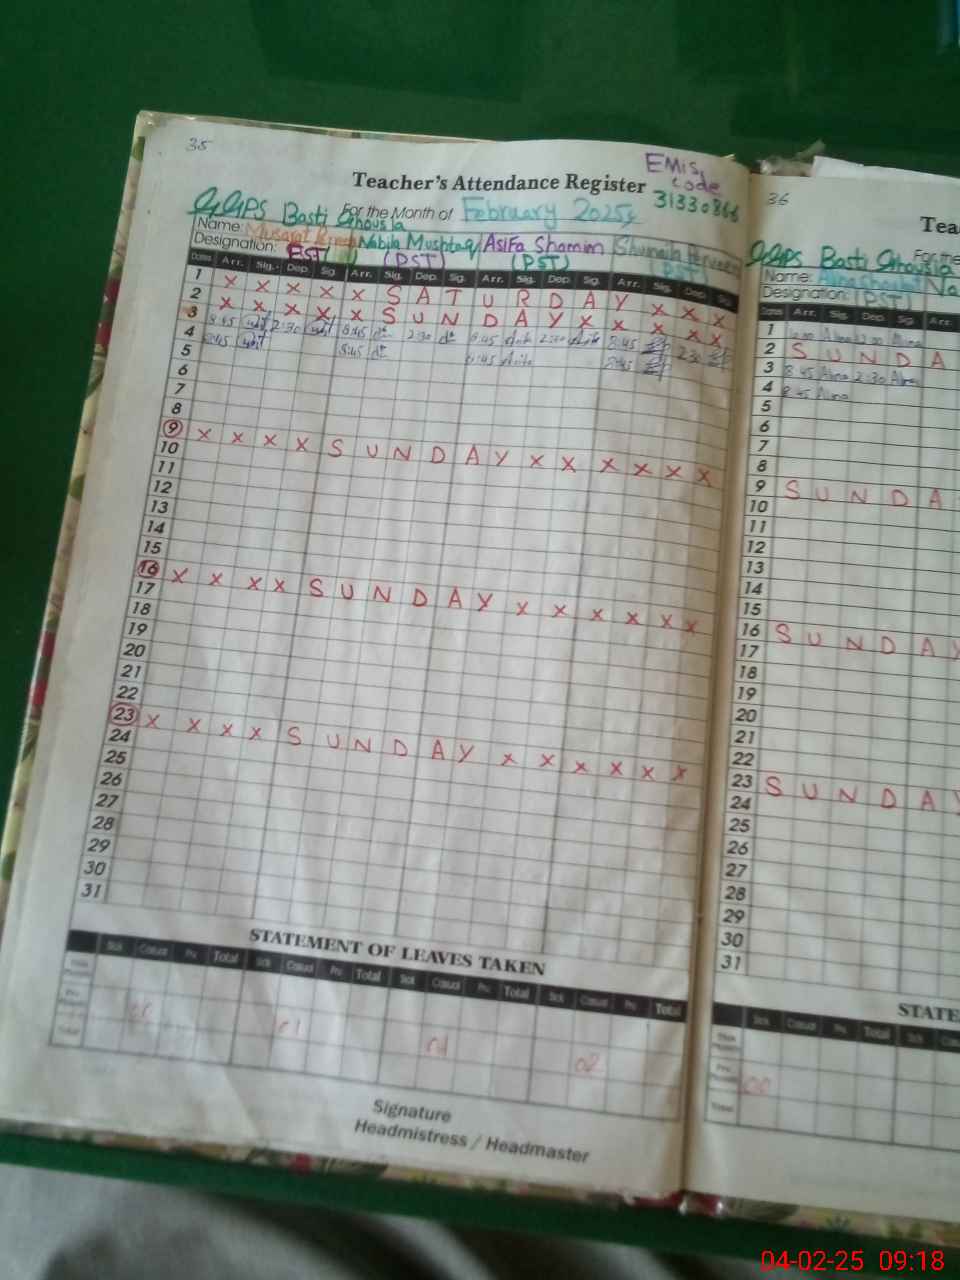 35
EMIS
code
Teacher's Attendance Register
31330866
GGPS Basti Ghousia
For the Month of February 2025
Name: Musarat Nabila Mushtaq Asifa Shamim
Designation: EST (PST) (PST) PST
Dates Arr. Sig. Dep. Sig. Arr. Sig. Dep. Sig. Arr. Sig. Dep. Sig. Arr. Sig. Dep. Sig.
1 x x x x x S A T U R D A Y x x x
2 x x x x x S U N D A Y x x x x x
3 8:45 2:30 8:45 2:30 8:45 2:30 8:45 2:30
4 8:45 8:45 8:45 8:45
5
6
7
8
9 x x x x S U N D A Y x x x x x x
10
11
12
13
14
15
16 x x x x S U N D A Y x x x x x x
17
18
19
20
21
22
23 x x x x S U N D A Y x x x x x x
24
25
26
27
28
29
30
31
STATEMENT OF LEAVES TAKEN
Sick Casual Prv. Total Sick Casual Prv. Total Sick Casual Prv. Total Sick Casual Prv. Total
Total
Signature
Headmistress / Headmaster
36
Tea
GGPS Basti Ghousia For the
Name: Na
Designation: (PST)
Dates Arr. Sig. Dep. Sig. Arr.
1
2 S U N D A
3 8:45 Alina 2:30 Alina
4 8:45 Alina
5
6
7
8
9 S U N D A
10
11
12
13
14
15
16 S U N D A Y
17
18
19
20
21
22
23 S U N D A Y
24
25
26
27
28
29
30
31
STATE
Sick Casual Prv. Total Sick
Total
04-02-25 09:18